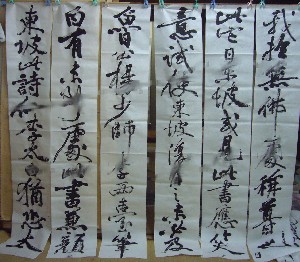 東坡此詩似李太白猶恐太
白有未到處此書兼顏
魯公楊少師李西臺筆
意試使東坡復為之未必及
此它日東坡或見此書應笑
我於無佛處稱尊也